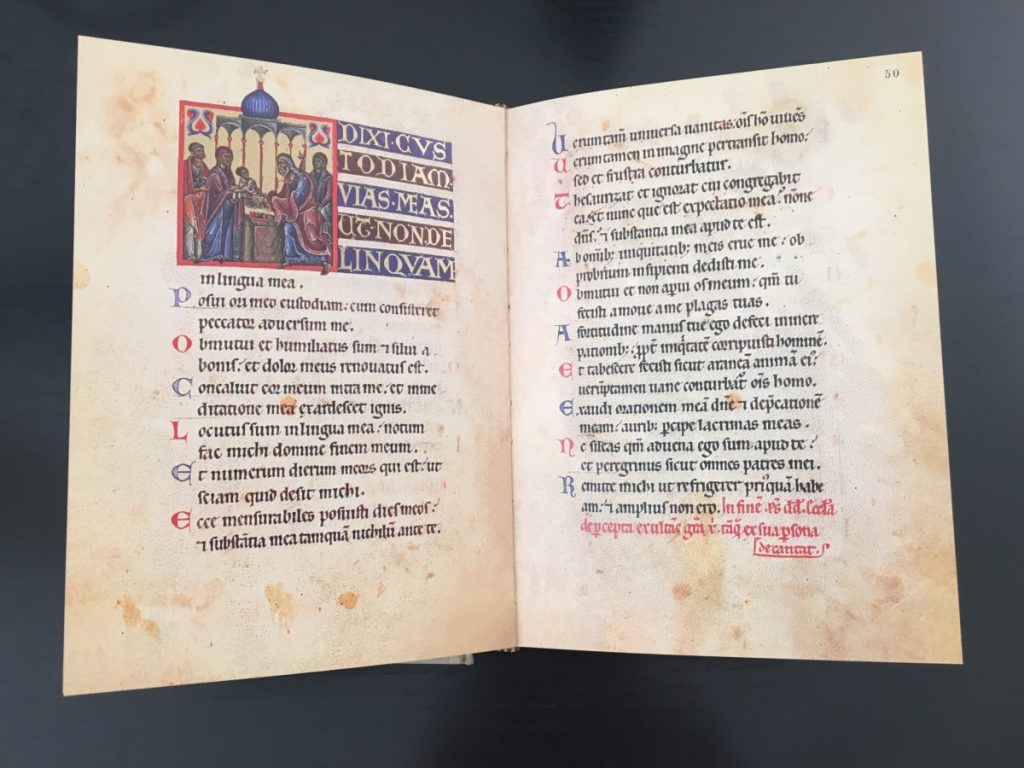 DIXI·CVS
TODIAM
VIAS·MEAS·
UT·NON·DE
LINQVAM
in lingua mea.
Posui ori meo custodiam: cum consisteret
peccator adversum me.
Obmutui et humiliatus sum ⁊ silui a
bonis: et dolor meus renovatus est.
Concaluit cor meum intra me: et in me
ditatione mea exardescet ignis.
Locutus sum in lingua mea: notum
fac michi domine finem meum.
Et numerum dierum meorꝫ qui est: ut
sciam quid desit michi.
Ecce mensurabiles posuisti dies meos:
⁊ substātia mea tamquā nichilū ante te.
50
Uerumtam̄ universa vanitas: oīs hō vivēs
Uerumtamen in imagine pertransit homo:
sed et frustra conturbatur.
Thesaurizat et ignorat cui congregabit
ea. Et nunc que est expectatio mea: nōne
dn̄s: ⁊ substantia mea apud te est.
Ab omib; iniquitatib; meis erue me: ob
probrium insipienti dedisti me.
Obmutui et non aperui os meum: qm̄ tu
fecisti amove a me plagas tuas.
A fortitudine manus tue ego defeci in incre
pationib; ꝓpt̄ iniq̇tatē corripuisti hominē.
Et tabescere fecisti sicut araneā animā ei⁹:
ueruptamen uane conturbat̄ oīs homo.
Exaudi orationem meā dn̄e ⁊ dep̄cationē
meam: aurib; percipe lacrimas meas.
Ne sileas qm̄ advena ego sum apud te:
et peregrinus sicut omnes patres mei.
Remitte michi ut refrigerer priꝰquā habe
am: ⁊ amplius non ero. In finē ps̄ dd̄.
de percepta ex ꝑsona
decantat.